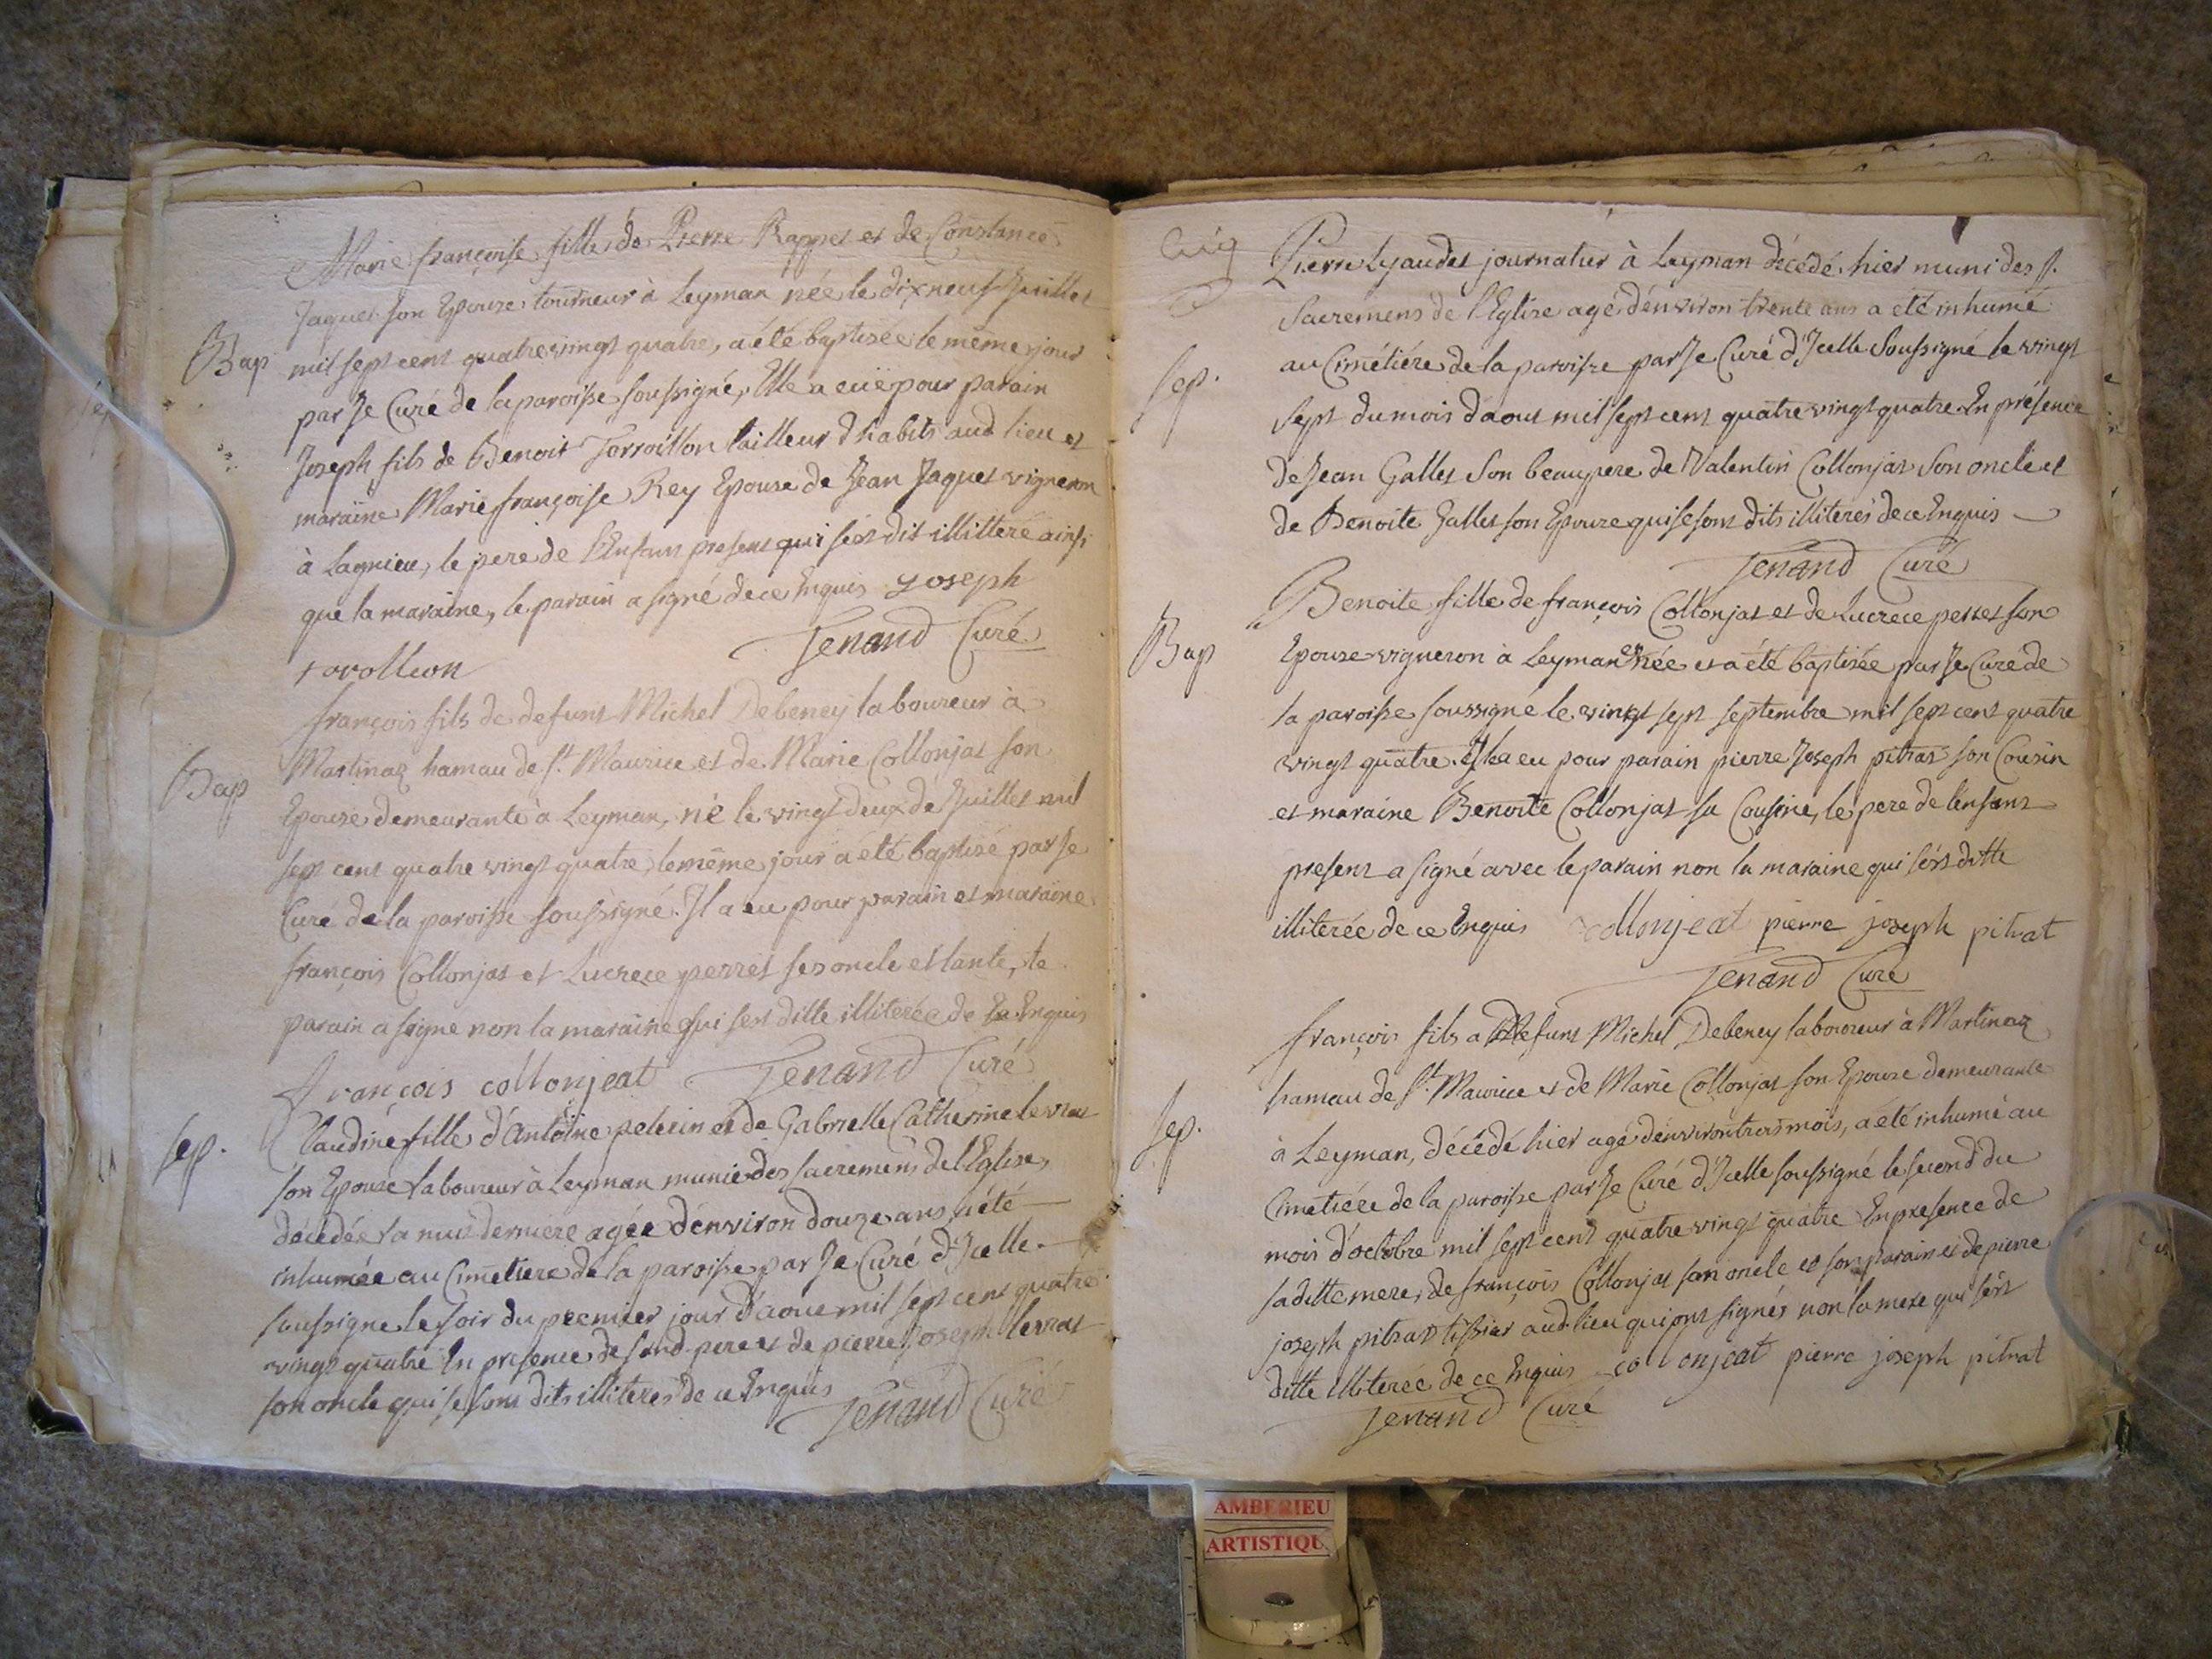 Marie françoise fille de Pierre Rappet et de Constance
Jaquet son Epouse tourneur à Leyman née le dix neuf Juillet
Bap mil sept cent quatre vingt quatre, a été baptisée le même jour
par Je Curé de la paroisse soussigné, Elle a euë pour parain
Joseph fils de Benoit Torroillon tailleur d'habits aud lieu et
maraine Marie françoise Rey Epouse de Jean Jaquet vigneron
à Lagnieu, le pere de l'Enfant present qui s'est dit illitteré ainsi
que la maraine, le parain a signé de ce Enquis Joseph
Tenand Curé
François fils de defunt Michel Debeney laboureur à
Martinaz hamau de St. Maurice et de Marie Collonjat son
Bap
Epouse demeurante à Leyman, né le vingt deux de Juillet mil
sept cent quatre vingt quatre, le même jour a été baptisé par Je
Curé de la paroisse soussigné. Il a eu pour parain et maraine
françois Collonjat et Lucrece perret ses oncle et tante, le
parain a signé non la maraine qui s'est ditte illiterée de Enquis
François collonjeat Tenand Curé
Sep. Claudine fille d'Antoine pelerin et de Gabrielle Catherine levrat
son Epouse laboureur à Leyman munie des sacremens de l'Eglise,
décédée la nuit derniere agée d'environ douze ans a été
inhumée au Cimetiere de la paroisse par Je Curé d'Icelle
soussigné le soir du premier jour d'aoust mil sept cent quatre
vingt quatre En presence de sond. pere et de pierre joseph levrat
son oncle qui se sont dits illiterés de ce Enquis
Tenand Curé
Pierre Lyaudet journalier à Leyman décédé hier muni des S.
Sacremens de l'Eglise agé d'environ trente ans a été inhumé
Sep. au Cimétiére de la paroisse par Je Curé d'Icelle Soussigné le vingt
sept du mois d'aout mil sept cent quatre vingt quatre En présence
de Jean Gallet son beaupere de Valentin Collonjat Son oncle et
de Benoite Gallet son Epouse qui se sont dits illiterés de ce Enquis
Tenand Curé
Benoite fille de françois Collonjat et de Lucrece perret son
Bap Epouse vigneron à Leyman est née et a été baptisée par Je Curé de
la paroisse soussigné le vingt sept septembre mil sept cent quatre
vingt quatre. Il a eu pour parain pierre Joseph pitrat son Cousin
et maraine Benoite Collonjat sa Cousine, le pere de l'enfant
present a signé avec le parain non la maraine qui s'est ditte
illiterée de ce Enquis collonjeat pierre joseph pitrat
Tenand Curé
François fils a defunt Michel Debeney laboureur à Martinaz
hamau de St. Maurice et de Marie Collonjat son Epouse demeurante
Sep. à Leyman, décédé hier agé d'environ trois mois, a été inhumé au
Cimetiére de la paroisse par Je Curé d'Icelle soussigné le second du
mois d'octobre mil sept cent quatre vingt quatre En presence de
sa ditte mere, de françois Collonjat son oncle et son parain et de pierre
joseph pitrat tissier aud. lieu qui ont signés non la mere qui s'est
ditte illiterée de ce Enquis collonjeat pierre joseph pitrat
Tenand Curé
AMBERIEU
ARTISTIQU